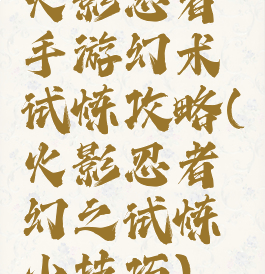 火影忍者
手游幻术
试炼攻略(
火影忍者
幻之试炼
小技巧)